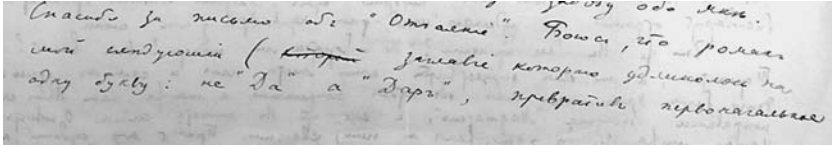 обо мнѣ.
Спасибо за письмо объ "Отчаяніи". Боюсь, что романъ
мой слѣдующій (который заглавіе котораго удлинилось на
одну букву: не "Да" а "Даръ", превративъ первоначальное